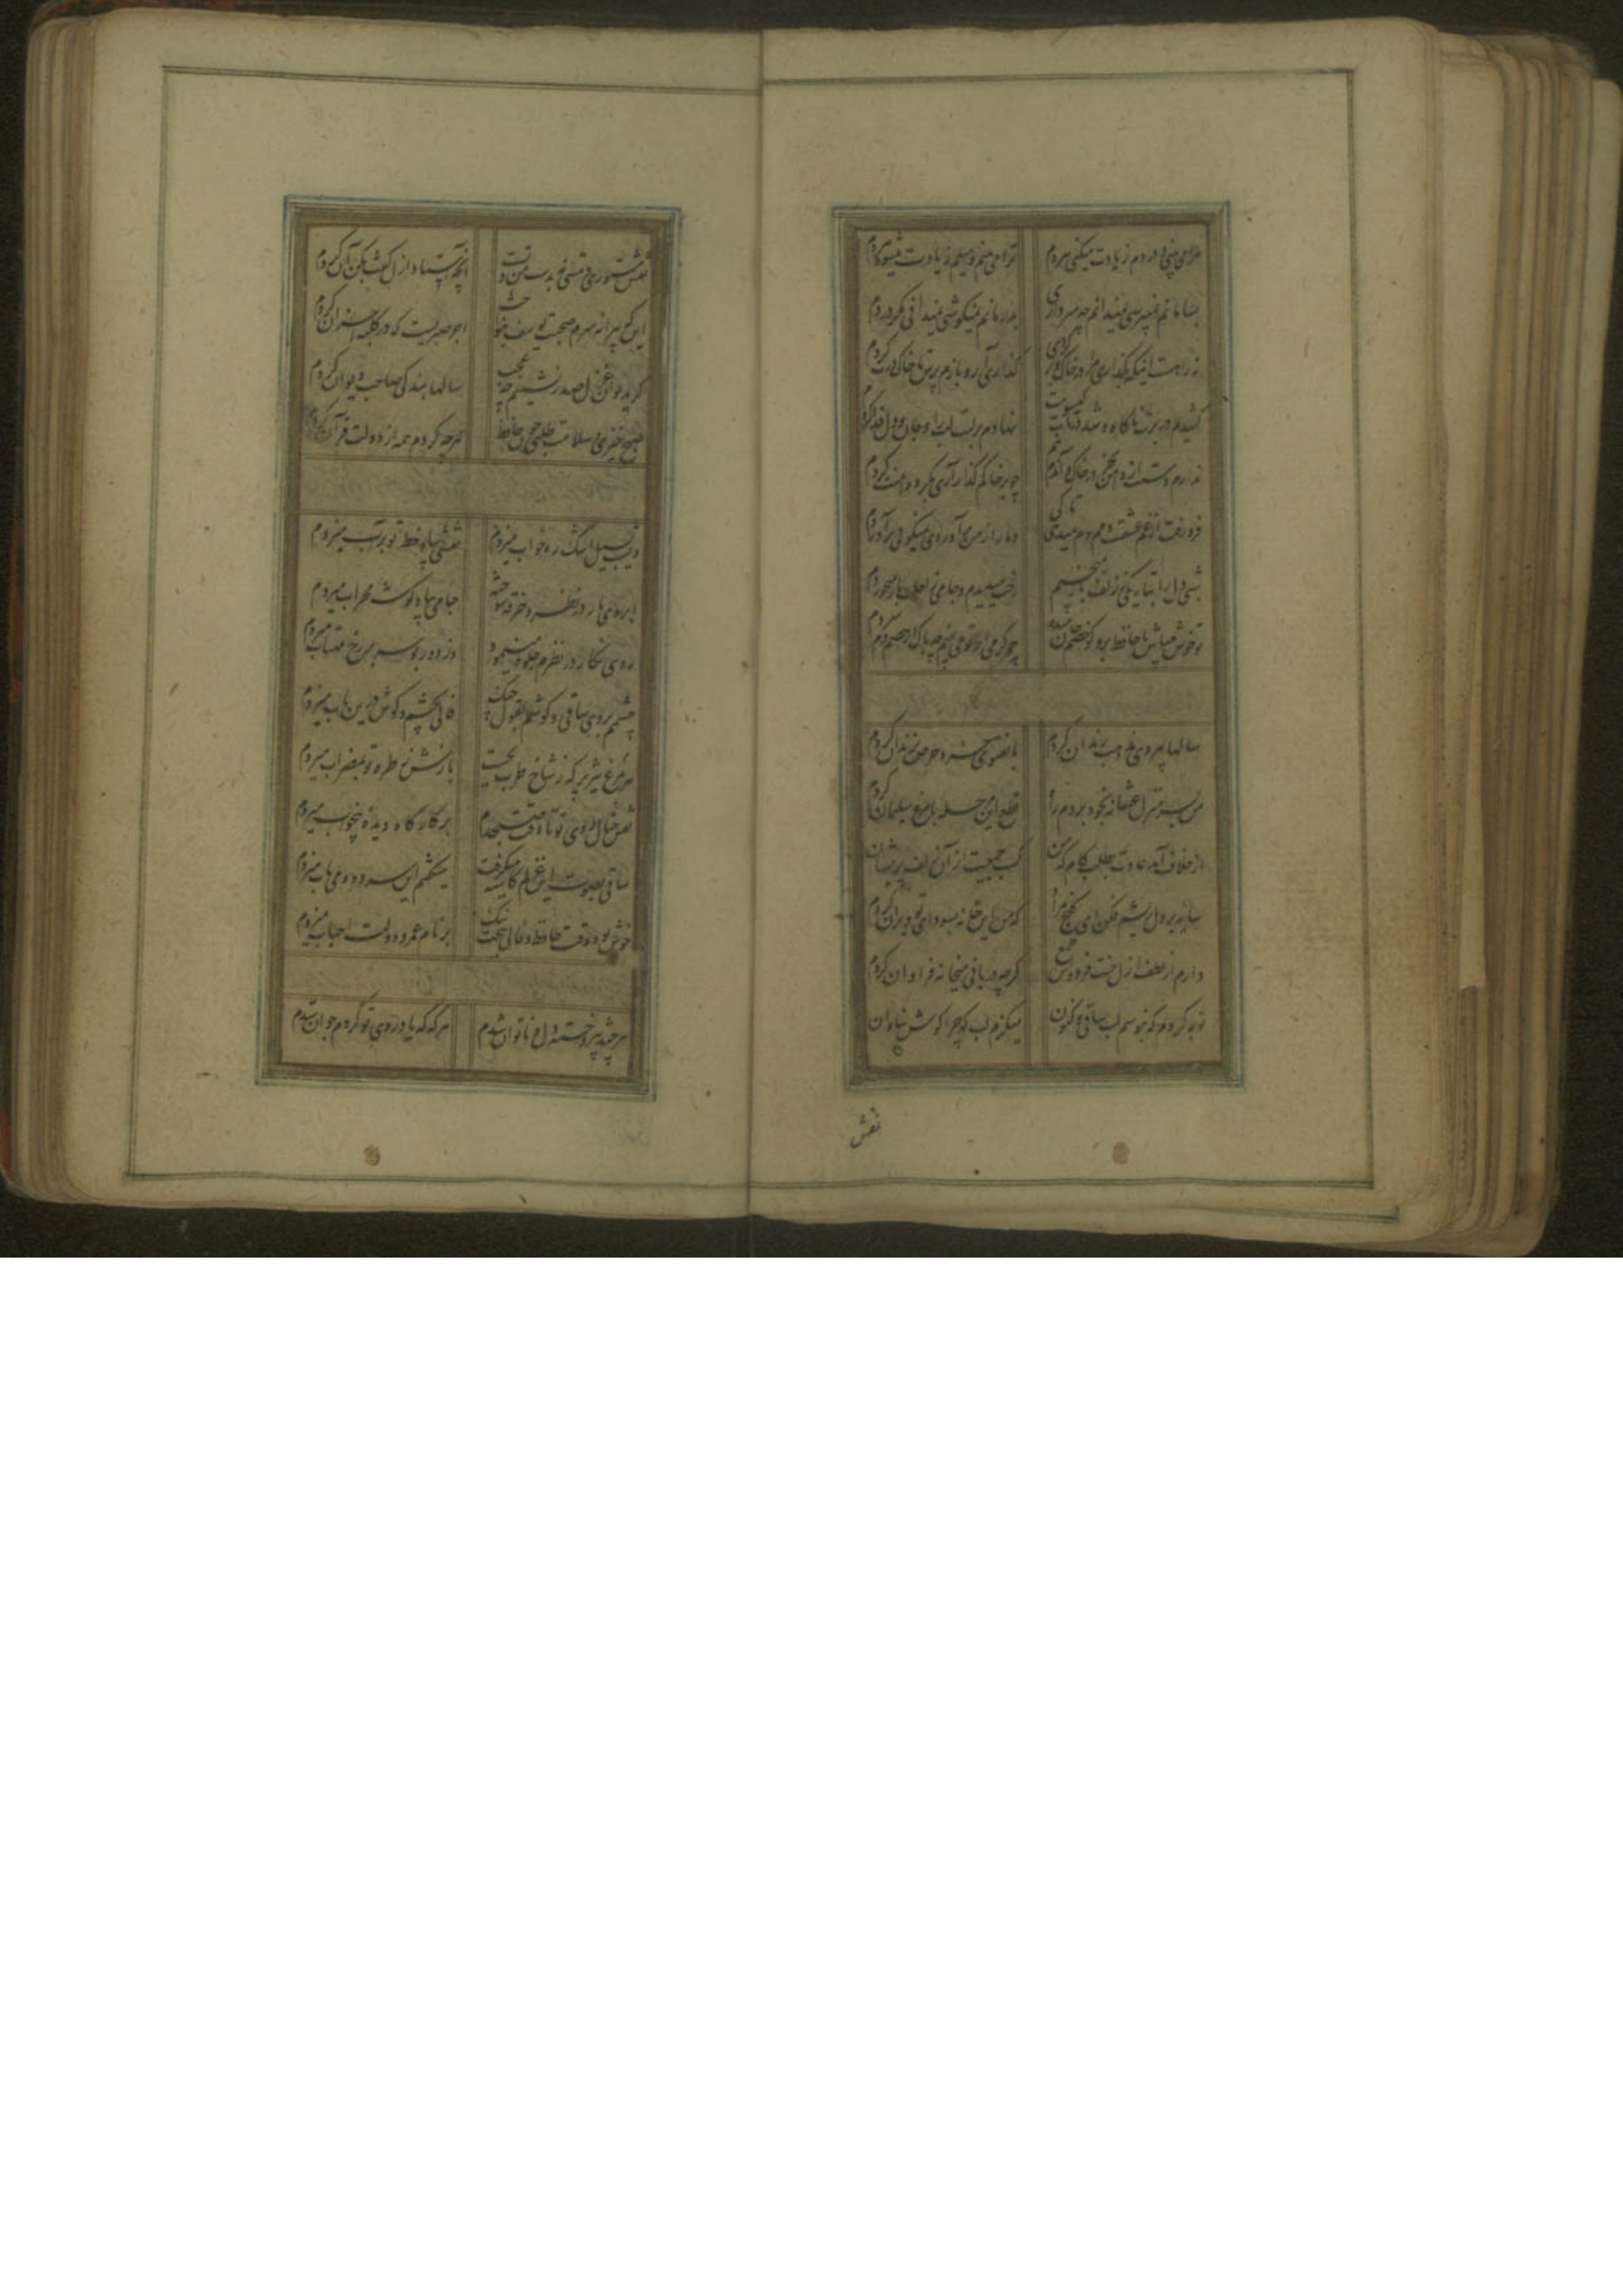 مرا می بینی و دردم زیادت میکنی هر دم
ترا می بینم و میلم زیادت میشود هر دم
بسامانم نمیپرسی نمیدانم چه سر داری
بدرمانم نمیکوشی نمیدانی مکر دردم
نه راهست اینکه بکذاری مرا در خاک و بکریزی
کذاری آر و بازم پرس تا خاک رهت کردم
ندارم دستت از دامن بجز در خاک و آندم هم
چو بر خاکم کذار آری بکیرد دامنت کردم
فرو رفت از غم عشقت دمم دم میدهی تا کی
دمار از من برآوردی نمیکویی برآوردم
شبی دل را بتاریکی ز زلفت باز میجستم
رخت میدیدم و جامی ز لعلت باز میخوردم
تو خوش میباش با حافظ برو کو خصم جان میده
چو کرمی از تو می بینم چه باک از خصم دم سردم
سالها پیروی مذهب رندان کردم
تا بفتوی خرد حرص بزندان کردم
من بسر منزل عنقا نه بخود بردم راه
قطع این مرحله با مرغ سلیمان کردم
از خلاف آمد عادت بطلب کام که من
کسب جمعیت از آن زلف پریشان کردم
سایه بر دل ریشم فکن ای کنج مراد
که من این خانه بسودای تو ویران کردم
دارم از لطف ازل جنت فردوس طمع
کرچه دربانی میخانه فراوان کردم
توبه کردم که نبوسم لب ساقی و کنون
میکزم لب که چرا کوش بنادان کردم
نقش
نقش مستوری و مستی نه بدست من و تست
آنچه استاد ازل کفت بکن آن کردم
این که پیرانه سرم صحبت یوسف بنواخت
اجر صبریست که در کلبه احزان کردم
کر بدیوان غزل صدرنشینم چه عجب
سالها بندکی صاحب دیوان کردم
صبح خیزی و سلامت طلبی چون حافظ
هر چه کردم همه از دولت قرآن کردم
دیشب بسیل اشک ره خواب میزدم
نقشی بیاد خط تو بر آب میزدم
ابروی یار در نظر و خرقه سوخته
جامی بیاد کوشه محراب میزدم
روی نکار در نظرم جلوه مینمود
وز دور بوسه بر رخ مهتاب میزدم
چشمم بروی ساقی و کوشم بقول چنک
فالی بچشم و کوش درین باب میزدم
هر مرغ فکر کز سر شاخ طرب بجست
بازش ز طره تو بمضراب میزدم
نقش خیال روی تو تا وقت صبحدم
بر کارکاه دیده بیخواب میزدم
ساقی بصوت این غزلم کاسه میکرفت
میکفتم این سرود و می ناب میزدم
خوش بود وقت حافظ و فالی بخت نیک
بر نام عمر و دولت احباب میزدم
هر چند پیر و خسته دل و ناتوان شدم
هر که که یاد روی تو کردم جوان شدم